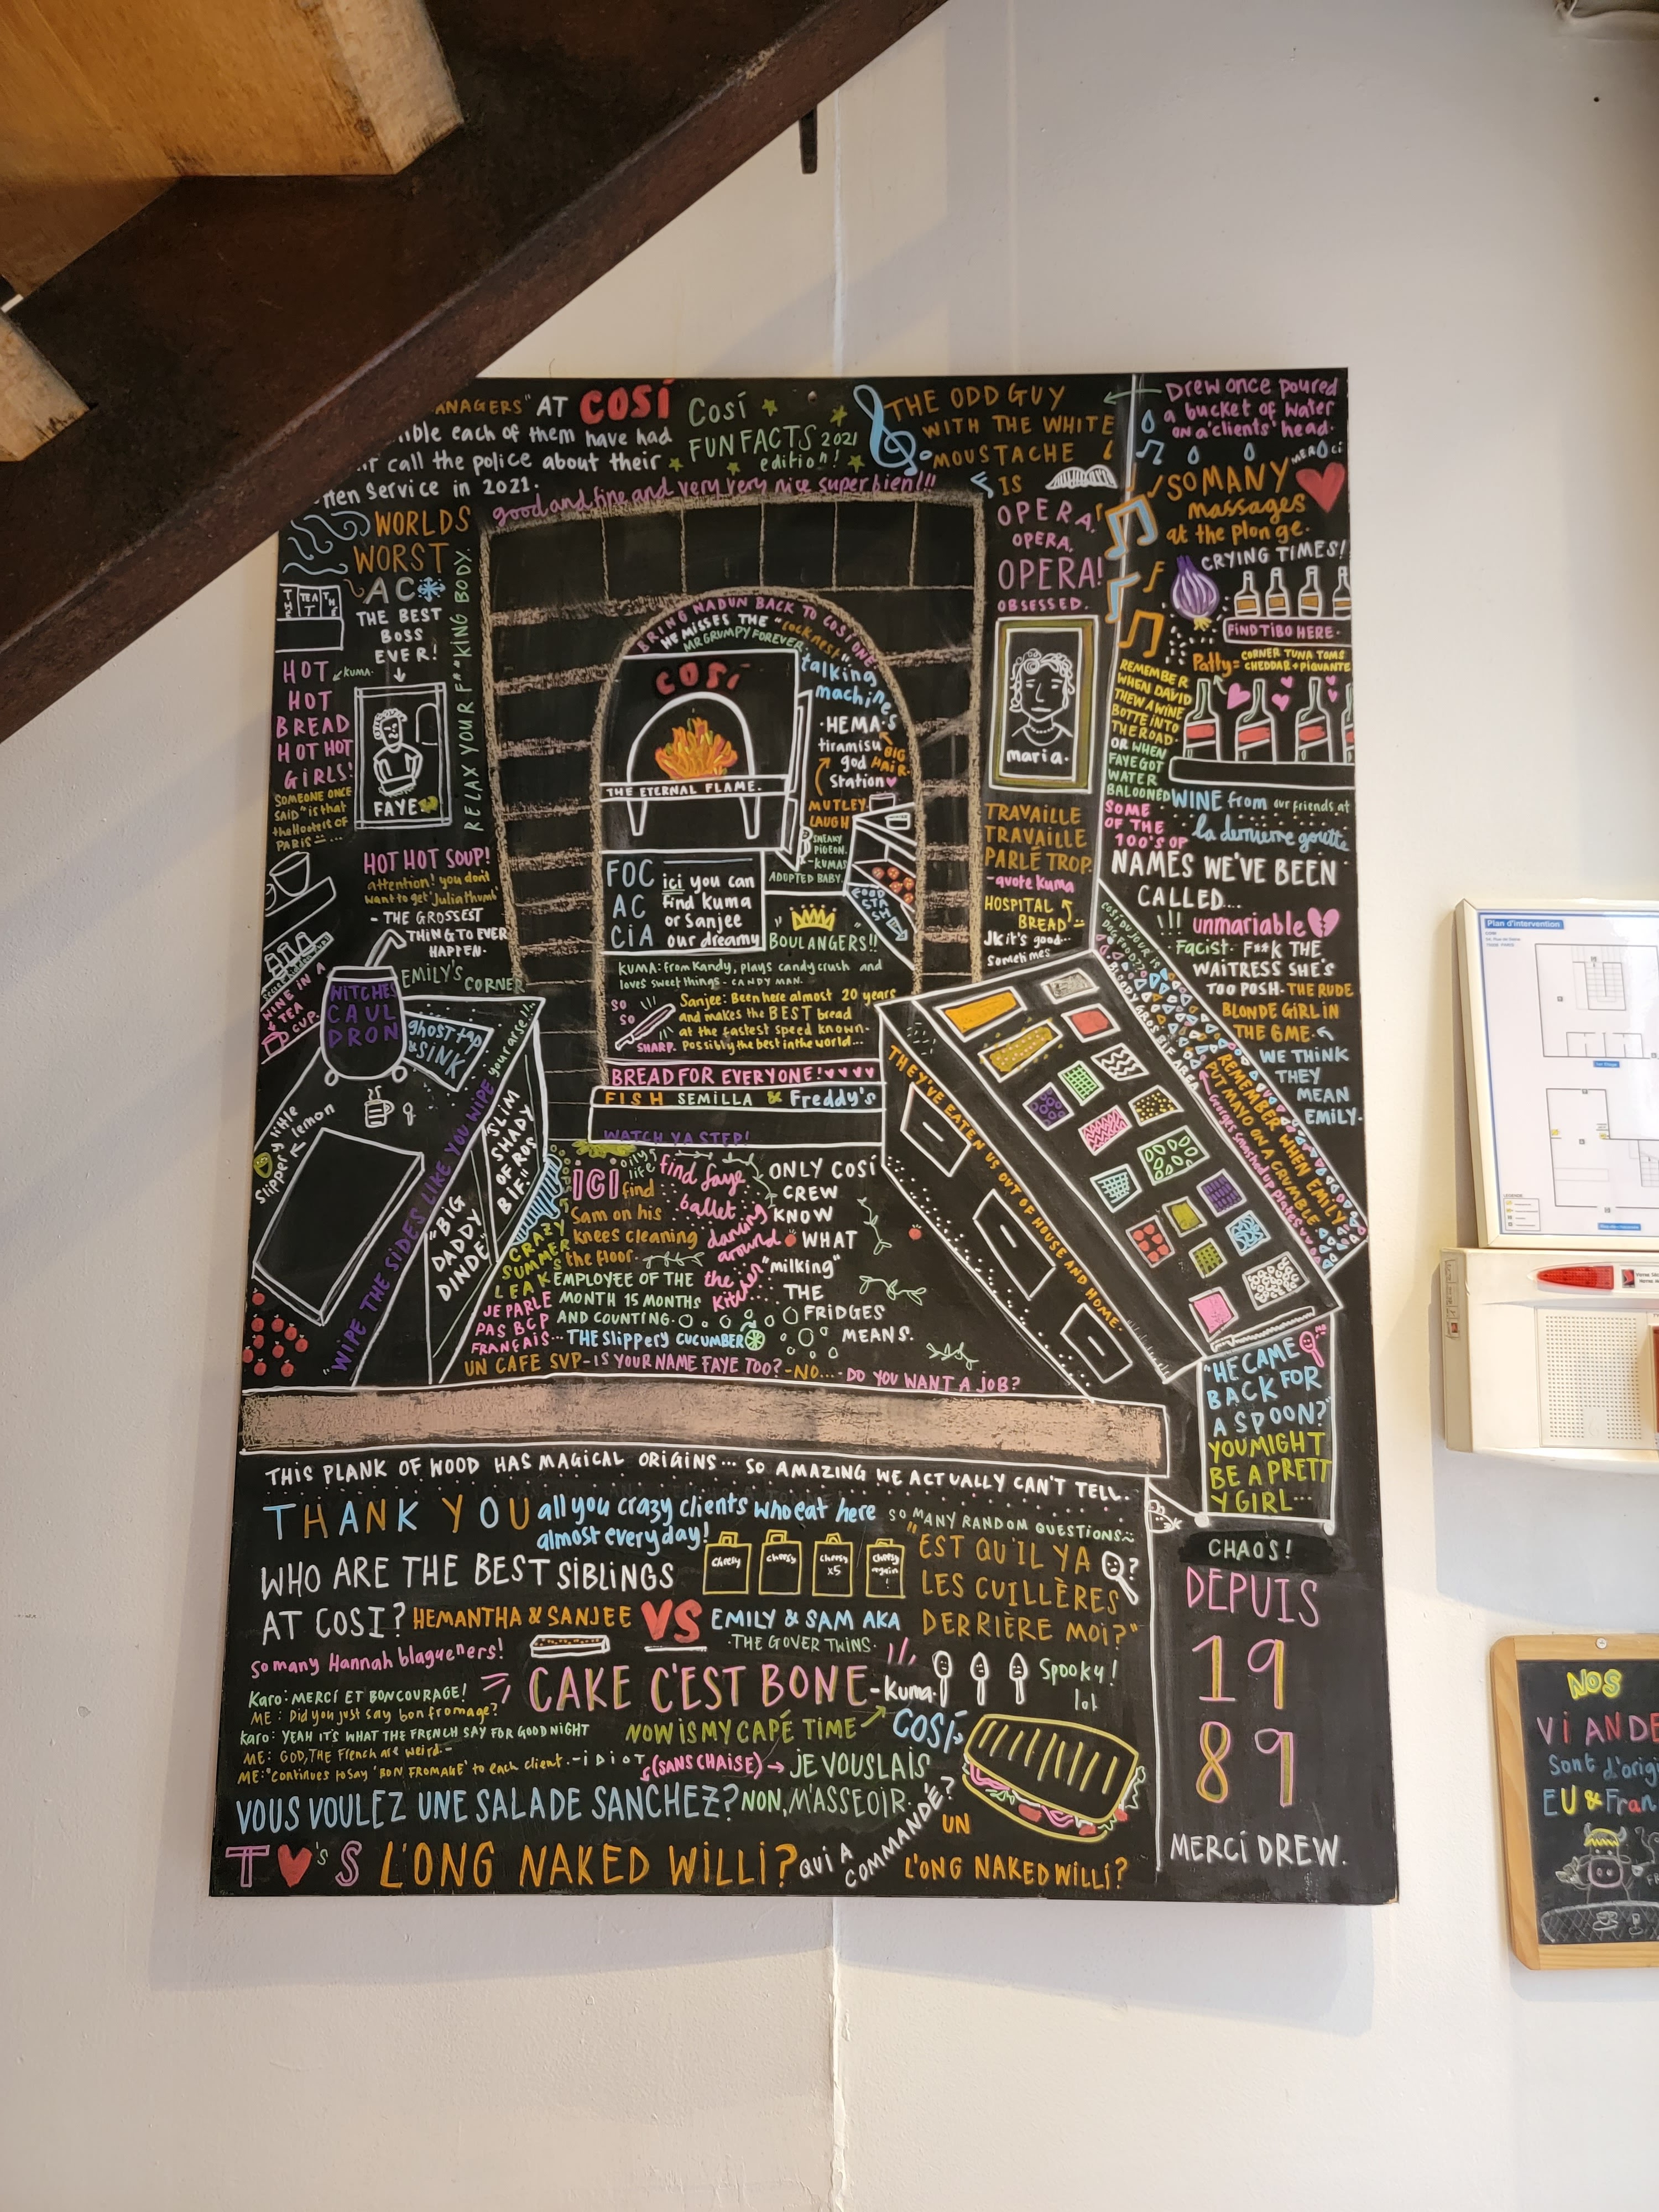 ANAGERS" AT COSÍ
each of them have had
call the police about their
service in 2021.
Cosí
FUN FACTS 2021
edition!
good and fine and very very very nice super bien!!!
THE ODD GUY
WITH THE WHITE
MOUSTACHE
IS
OPERA,
OPERA,
OPERA!
OBSESSED.
Drew once poured
a bucket of water
on a clients' head.
MERCi
SO MANY
massages
at the plonge.
CRYING TIMES!
FIND TIBO HERE.
Patty = CORNER TUNA TOMS
CHEDDAR + PIQUANTE
REMEMBER
WHEN DAVID
THEW A WINE
BOTTE INTO
THE ROAD.
OR WHEN
FAYE GOT
WATER
BALOONED
WINE from our friends at
la dernière goutte
SOME
OF THE
100'S OF
NAMES WE'VE BEEN
CALLED...
!!! unmariable
Facist. F**K THE
WAITRESS SHE'S
TOO POSH. THE RUDE
BLONDE GIRL IN
THE 6ME.
WE THINK
THEY
MEAN
EMILY.
WORLDS
WORST
AC
THE BEST
BOSS
EVER!
FAYE
RELAX YOUR F**KING BODY.
THÉ
TEAT
THÉ
HOT
KUMA.
HOT
BREAD
HOT HOT
GIRLS!
SOMEONE ONCE
SAID "is that
the Hooters of
PARIS"...
HOT HOT SOUP!
attention! you don't
want to get 'Julia thumb'
- THE GROSSEST
THING TO EVER
HAPPEN.
EMILY'S CORNER
WINE IN A
TEA
CUP.
WITCHES
CAUL
DRON
ghost tap
& SINK
slippery little
lemon
"WIPE THE SIDES LIKE YOU WIPE your arse!!!
"SLIM
SHADY
OF ROS
BIF"
"BIG
DADDY
DINDE"
BRING NADUN BACK TO COSÍ ONE
HE MISSES THE "cock nest"
MR GRUMPY FOREVER.
COSí
THE ETERNAL FLAME.
talking
machines
HEMA'S
tiramisu
god
BIG
HAIR.
Station
MUTLEY
LAUGH
SNEAKY
PIGEON.
-KUMAS
ADOPTED BABY.
FOOD
STA
SH
FOC
AC
CIA
ici you can
find Kuma
or Sanjee
our dreamy
BOULANGERS!!
KUMA: from Kandy, plays candy crush and
loves sweet things - CANDY MAN.
SO
SO
SHARP.
Sanjee: Been here almost 20 years
and makes the BEST bread
at the fastest speed known-
Possibly the best in the world...
BREAD FOR EVERYONE!
FISH SEMILLA & Freddy's
WATCH YA STEP!
maria.
TRAVAILLE
TRAVAILLE
PARLÉ TROP.
-quote Kuma
HOSPITAL
BREAD
Jk it's good...
Sometimes
THEY'VE EATEN US OUT OF HOUSE AND HOME.
REMEMBER WHEN EMILY
PUT MAYO ON A CRUMBLE
Georges smashed up plates
ICI
find
Sam on his
knees cleaning
the floor.
oily
life
find faye
ballet
dancing
around
the
kitchen
CRAZY
SUMMER
LEAK
ONLY COSÍ
CREW
KNOW
WHAT
"milking"
THE
FRIDGES
MEANS.
EMPLOYEE OF THE
MONTH 15 MONTHS
AND COUNTING.
JE PARLE
PAS BCP
FRANÇAIS...
THE slippery CUCUMBER
UN CAFE SVP - IS YOUR NAME FAYE TOO? - NO... - DO YOU WANT A JOB?
"HE CAME
BACK FOR
A SPOON?"
YOU MIGHT
BE A PRETT
Y GIRL...
THIS PLANK OF WOOD HAS MAGICAL ORIGINS... SO AMAZING WE ACTUALLY CAN'T TELL.
THANK YOU all you crazy clients who eat here
almost everyday!
SO MANY RANDOM QUESTIONS
"EST QU'IL YA
LES CUILLÈRES
DERRIÈRE MOI?"
WHO ARE THE BEST SIBLINGS
AT COSI? HEMANTHA & SANJEE VS EMILY & SAM AKA
·THE GOVER TWINS·
cheesy
cheesy
x5
cheesy
again
!
so many Hannah blagueners!
CAKE C'EST BONE -Kuma.
Spooky!
lol
Karo: MERCÍ ET BON COURAGE!
ME: Did you just say bon fromage?
Karo: YEAH IT'S WHAT THE FRENCH SAY FOR GOODNIGHT
ME: GOD, THE French are weird.-
ME: "Continues to say 'BON FROMAGE' to each client. - iDiOT
NOW IS MY CAPÉ TIME
COSí
(SANS CHAISE) → JE VOUSLAIS
VOUS VOULEZ UNE SALADE SANCHEZ? NON, M'ASSEOIR.
T 's S L'ONG NAKED WILLi? QUI A COMMANDÉ?
UN
L'ONG NAKED WILLi?
CHAOS!
DEPUIS
19
89
MERCÍ DREW.
Plan d'intervention
NOS
VIANDE
Sont d'orig
EU & Fran